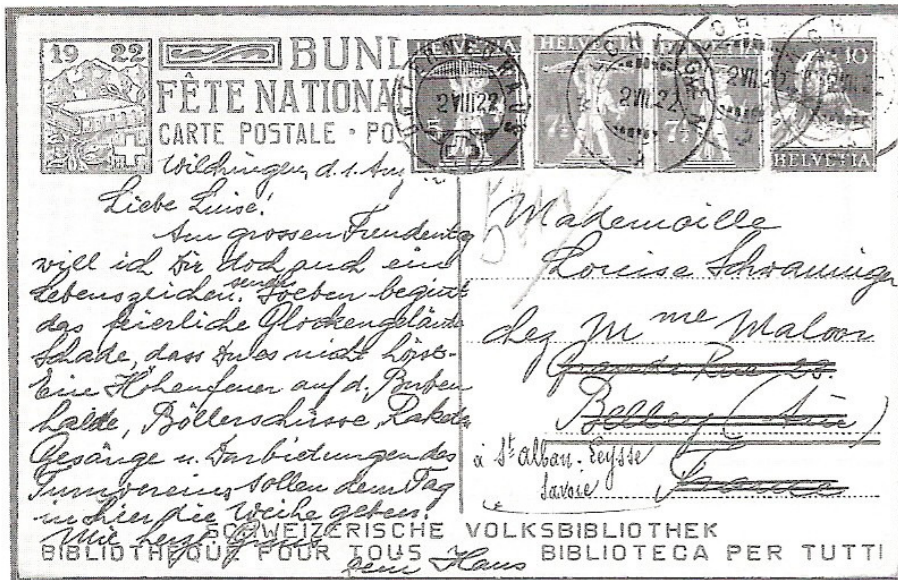 1922
BUND
FÊTE NATIONAL
CARTE POSTALE · PO
HELVETIA
5
2 VIII 22
HELVETIA
7½
2 VIII 22
HELVETIA
7½
2 VIII 22
10
HELVETIA
Wilchingen, d. 1. Aug.
Liebe Luise!
Am grossen Freudentag
will ich Dir doch auch ein
Lebenszeichen senden. Soeben beginnt
das feierliche Glockengeläute
Schade, dass Du es nicht hörst.
Eine Höhenfeuer auf d.
halde, Böllerschüsse, Raketen
Gesänge u. Darbietungen des
Turnvereins sollen dem Tag
hier die Weihe geben.
Mit herzl.
Dein Hans
Mademoiselle
Louise
chez Mme
Grande Rue 23.
Belley (Ain)
France
à St Alban-Leysse
Savoie
SCHWEIZERISCHE VOLKSBIBLIOTHEK
BIBLIOTHÈQUE POUR TOUS BIBLIOTECA PER TUTTI